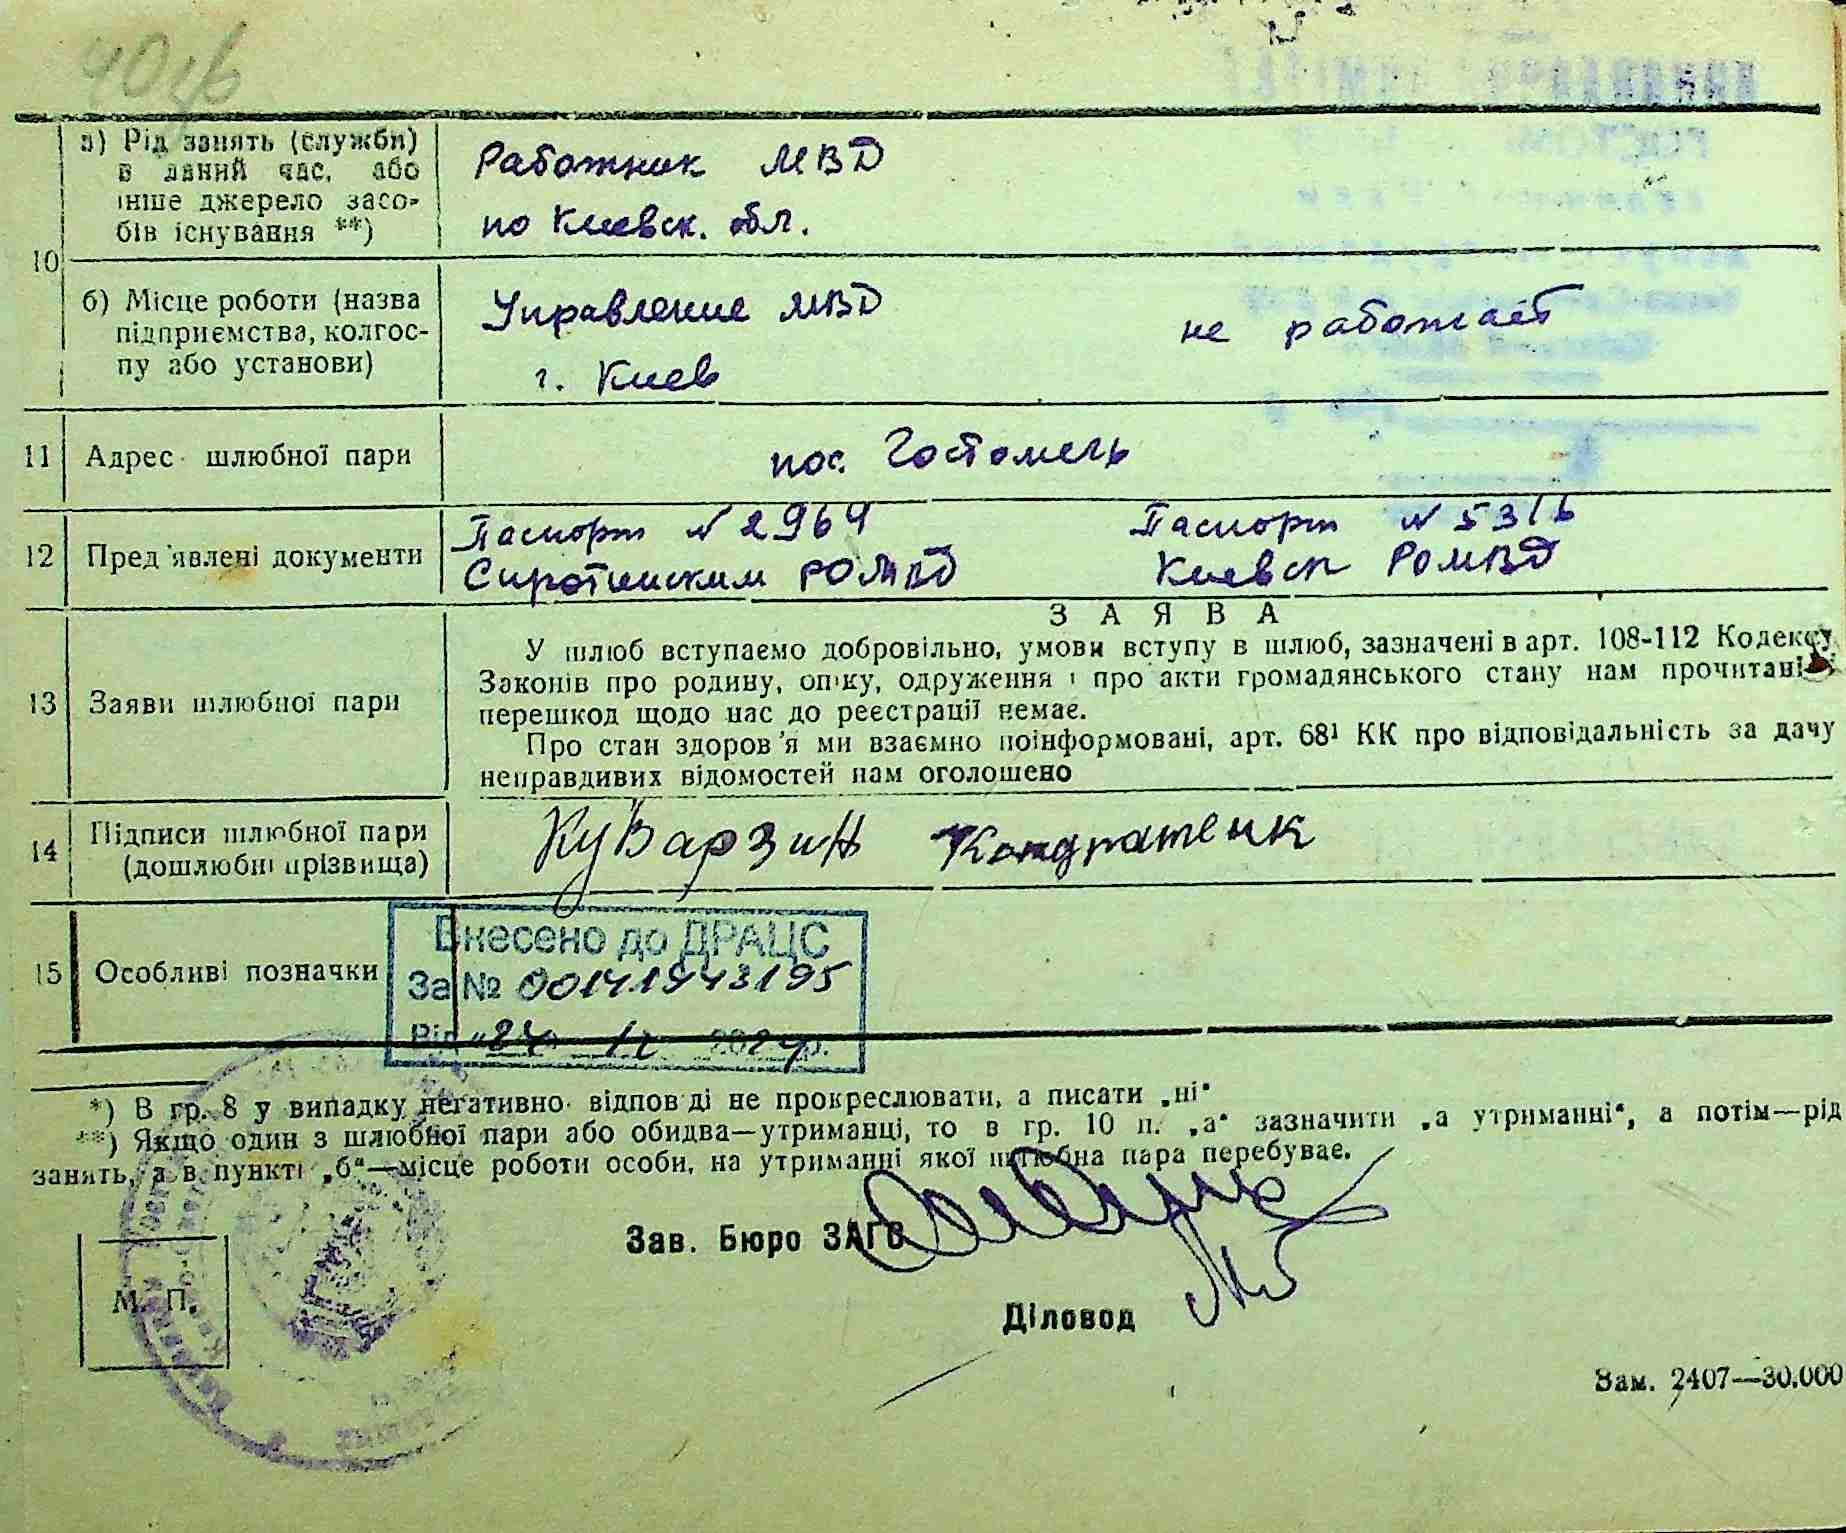 40зв
а) Рід занять (служби)
в даний час, або
інше джерело засо-
бів існування **)
Работник МВД
по Киевск. обл.
10
б) Місце роботи (назва
підприємства, колгос-
пу або установи)
Управление МВД
г. Киев
не работает
11 Адрес шлюбної пари
пос. Гостомель
12 Пред'явлені документи
Паспорт N 2964
Сиротинским РОМВД
Паспорт N 5316
Киевск РОМВД
13 Заяви шлюбної пари
ЗАЯВА
У шлюб вступаємо добровільно, умови вступу в шлюб, зазначені в арт. 108-112 Кодексу
Законів про родину, опіку, одруження і про акти громадянського стану нам прочитані і
перешкод щодо нас до реєстрації немає.
Про стан здоров'я ми взаємно поінформовані, арт. 68¹ КК про відповідальність за дачу
неправдивих відомостей нам оголошено
14 Підписи шлюбної пари
(дошлюбні прізвища)
Куварзин Кондратенк
15 Особливі позначки
Внесено до ДРАЦС
За № 00141943195
Від "24" 12 2024р.
*) В гр. 8 у випадку негативно відповіді не прокреслювати, а писати „ні"
**) Якщо один з шлюбної пари або обидва—утриманці, то в гр. 10 п. „а" зазначити „а утриманні", а потім—рід
занять, а в пункті „б"—місце роботи особи, на утриманні якої шлюбна пара перебуває.
Зав. Бюро ЗАГС
М. П.
Діловод
Зам. 2407—30.000